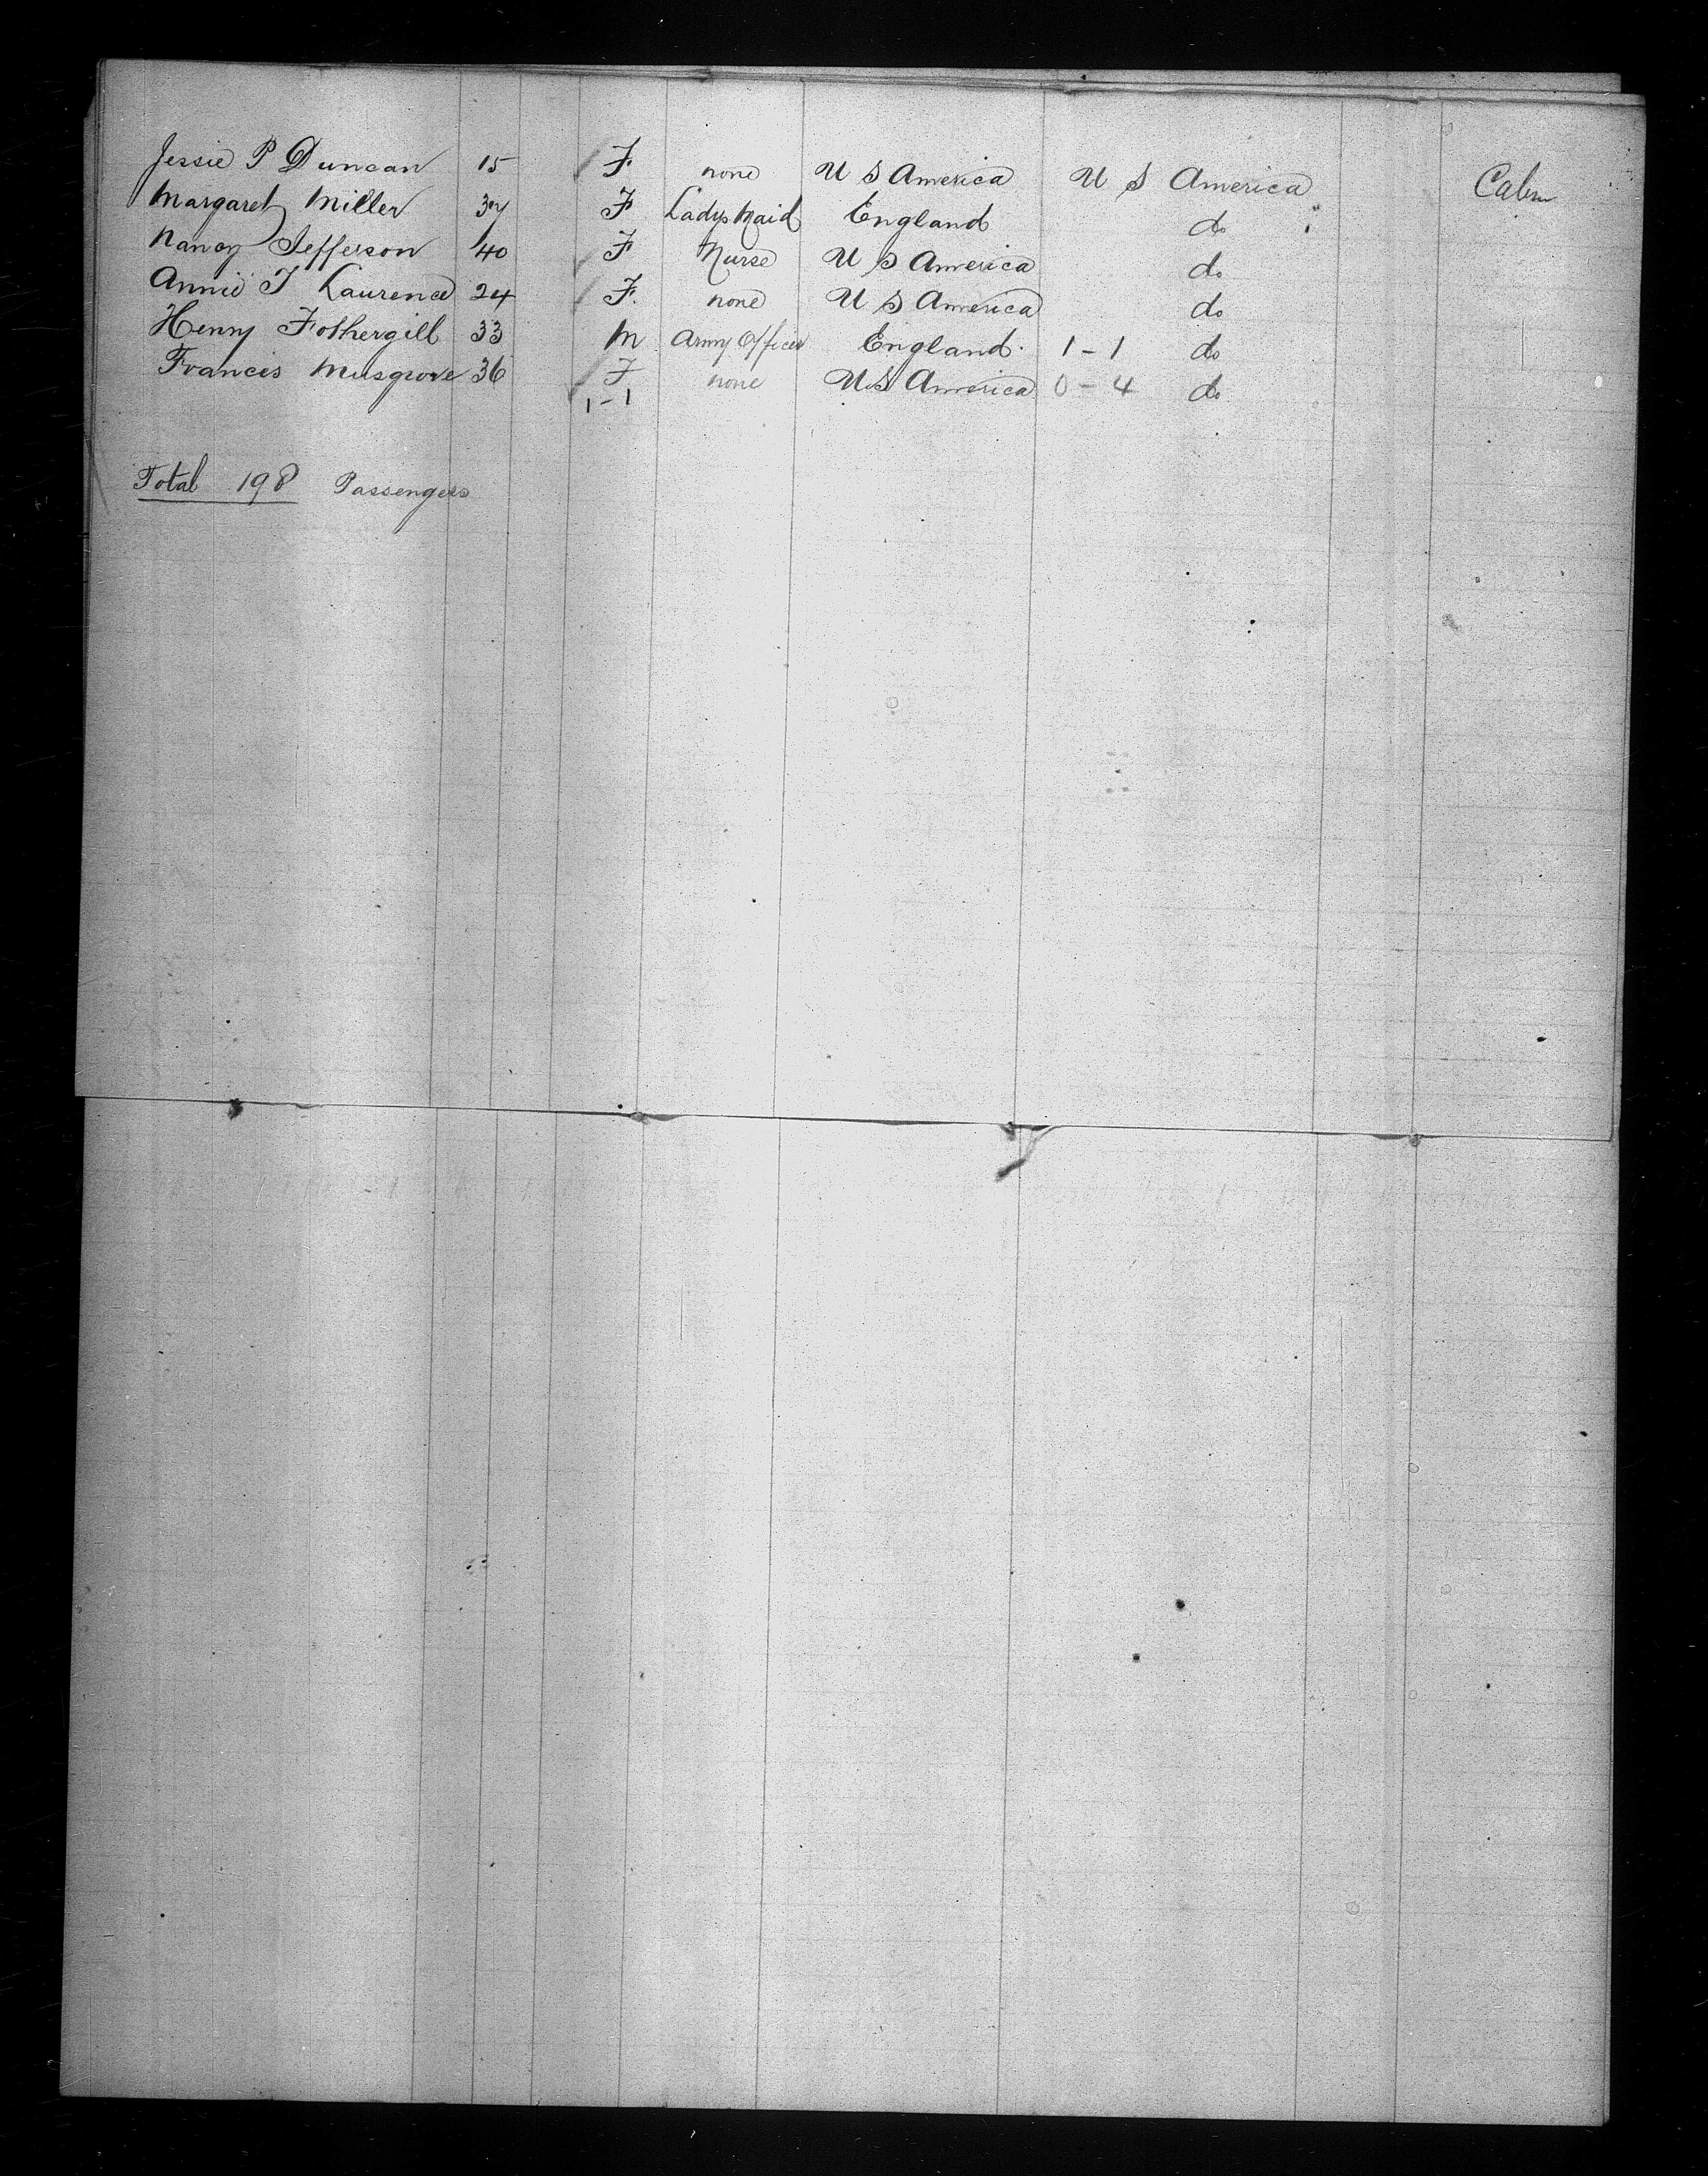 Jessie P Duncan 15 F none U S America U S America Cabin
Margaret Miller 37 F Ladys Maid England do
Nancy Jefferson 40 F Nurse U S America do
Annie T Laurence 24 F. none U S America do
Henry Fothergill 33 M Army Officer England 1-1 do
Francis Musgrove 36 F none U.S America 0-4 do
1-1
Total 198 Passengers